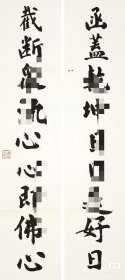 函蓋乾坤日日是好日
截断眾流心心即佛心